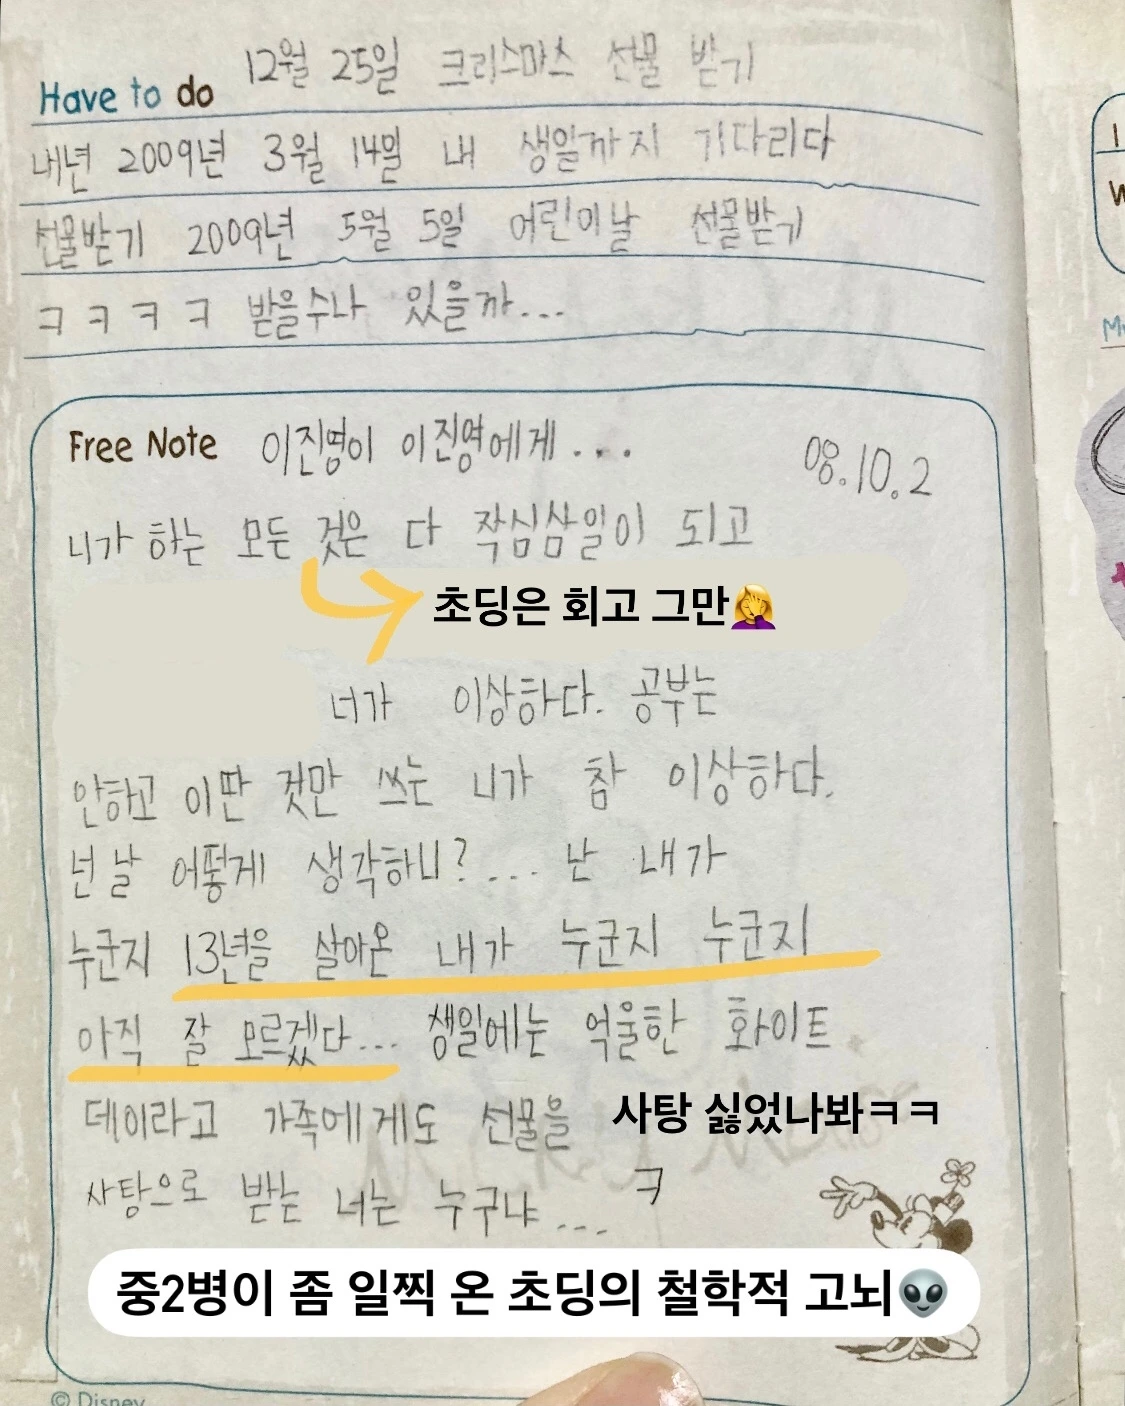 12월 25일 크리스마스 선물 받기
Have to do
내년 2009년 3월 14일 내 생일까지 기다리다
선물받기 2009년 5월 5일 어린이날 선물받기
ㅋㅋㅋㅋ 받을수나 있을까...
Free Note 이진영이 이진영에게... 08.10.2
니가 하는 모든 것은 다 작심삼일이 되고
초딩은 회고 그만🤦‍♀️
너가 이상하다. 공부는
안하고 이딴 것만 쓰는 니가 참 이상하다.
넌 날 어떻게 생각하니?... 난 내가
누군지 13년을 살아온 내가 누군지 누군지
아직 잘 모르겠다... 생일에는 억울한 화이트
데이라고 가족에게도 선물을 사탕 싫었나봐ㅋㅋ
사탕으로 받는 너는 누구냐... ㅋ
중2병이 좀 일찍 온 초딩의 철학적 고뇌👽
© Disney